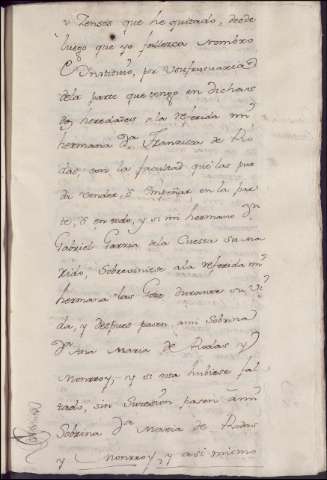 y Zensos que he quitado, desde
luego que yo fallezca nombro
e Instituio, por Vsufructuaria
dela parte que tengo en dichas
dos heredades a la referida mi
hermana Da. Franzisca de Ro
das con la facultad que las pue
da vender, ô empeñar en la par
te, ô en todo, y si mi hermano Dn.
Gabriel Garzia dela Cuesta su ma
rido, sobreviniese ala referida mi
hermana las Goze durante su vi
da, y despues pasen ami Sobrina
Da. Ana Maria de Rodas y
Monrroy, y si esta hubiese fal
tado, sin suzesion pasen â mi
Sobrina Da. Maria de Rodas
y Monrroy, y asi mismo